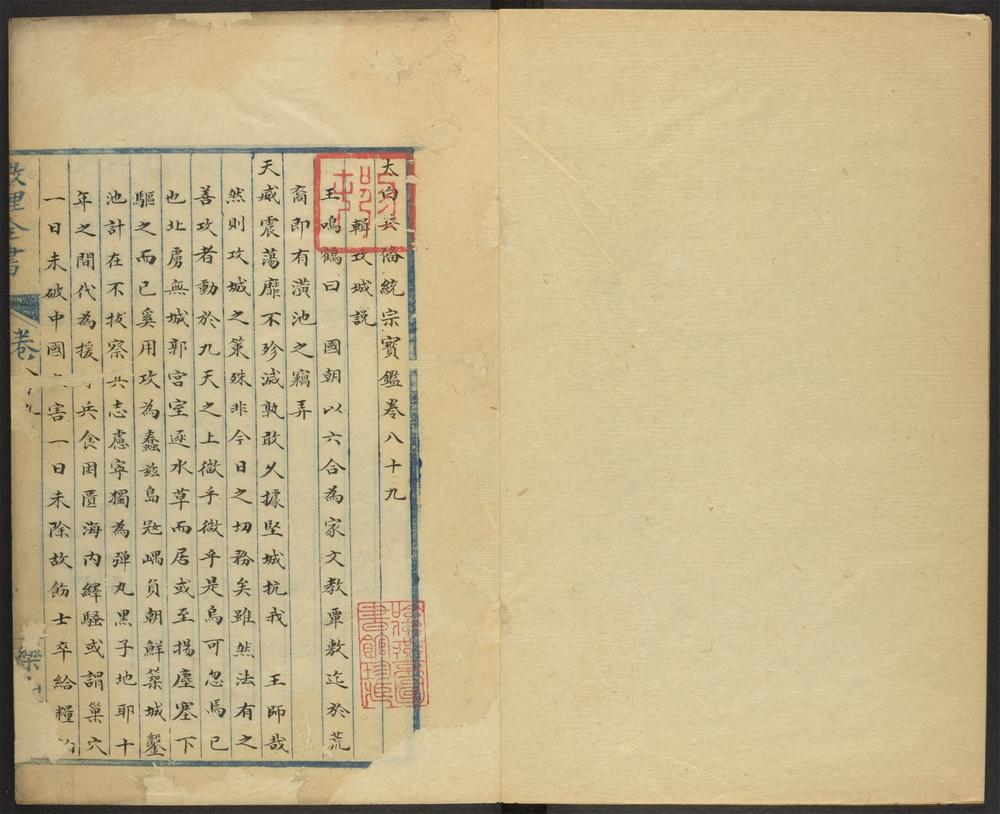 太白兵備統宗寶鑑卷八十九
輯攻城説
王鳴鶴曰 國朝以六合為家文教覃敷迄於荒
裔即有潢池之竊弄
天威震蕩靡不殄滅孰敢久據堅城抗我 王師哉
然則攻城之策殊非今日之切務矣雖然法有之
善攻者動於九天之上微乎微乎是烏可忽焉已
也北虜無城郭宮室逐水草而居或至揚塵塞下
驅之而已奚用攻為蠢茲島寇嵎負朝鮮築城鑿
池計在不拔察其志慮寧獨為彈丸黑子地耶十
年之間代為援 兵食困匱海内繹騷或謂巢穴
一日未破中國 害一日未除故飭士卒給糧
數理全書 卷八十九